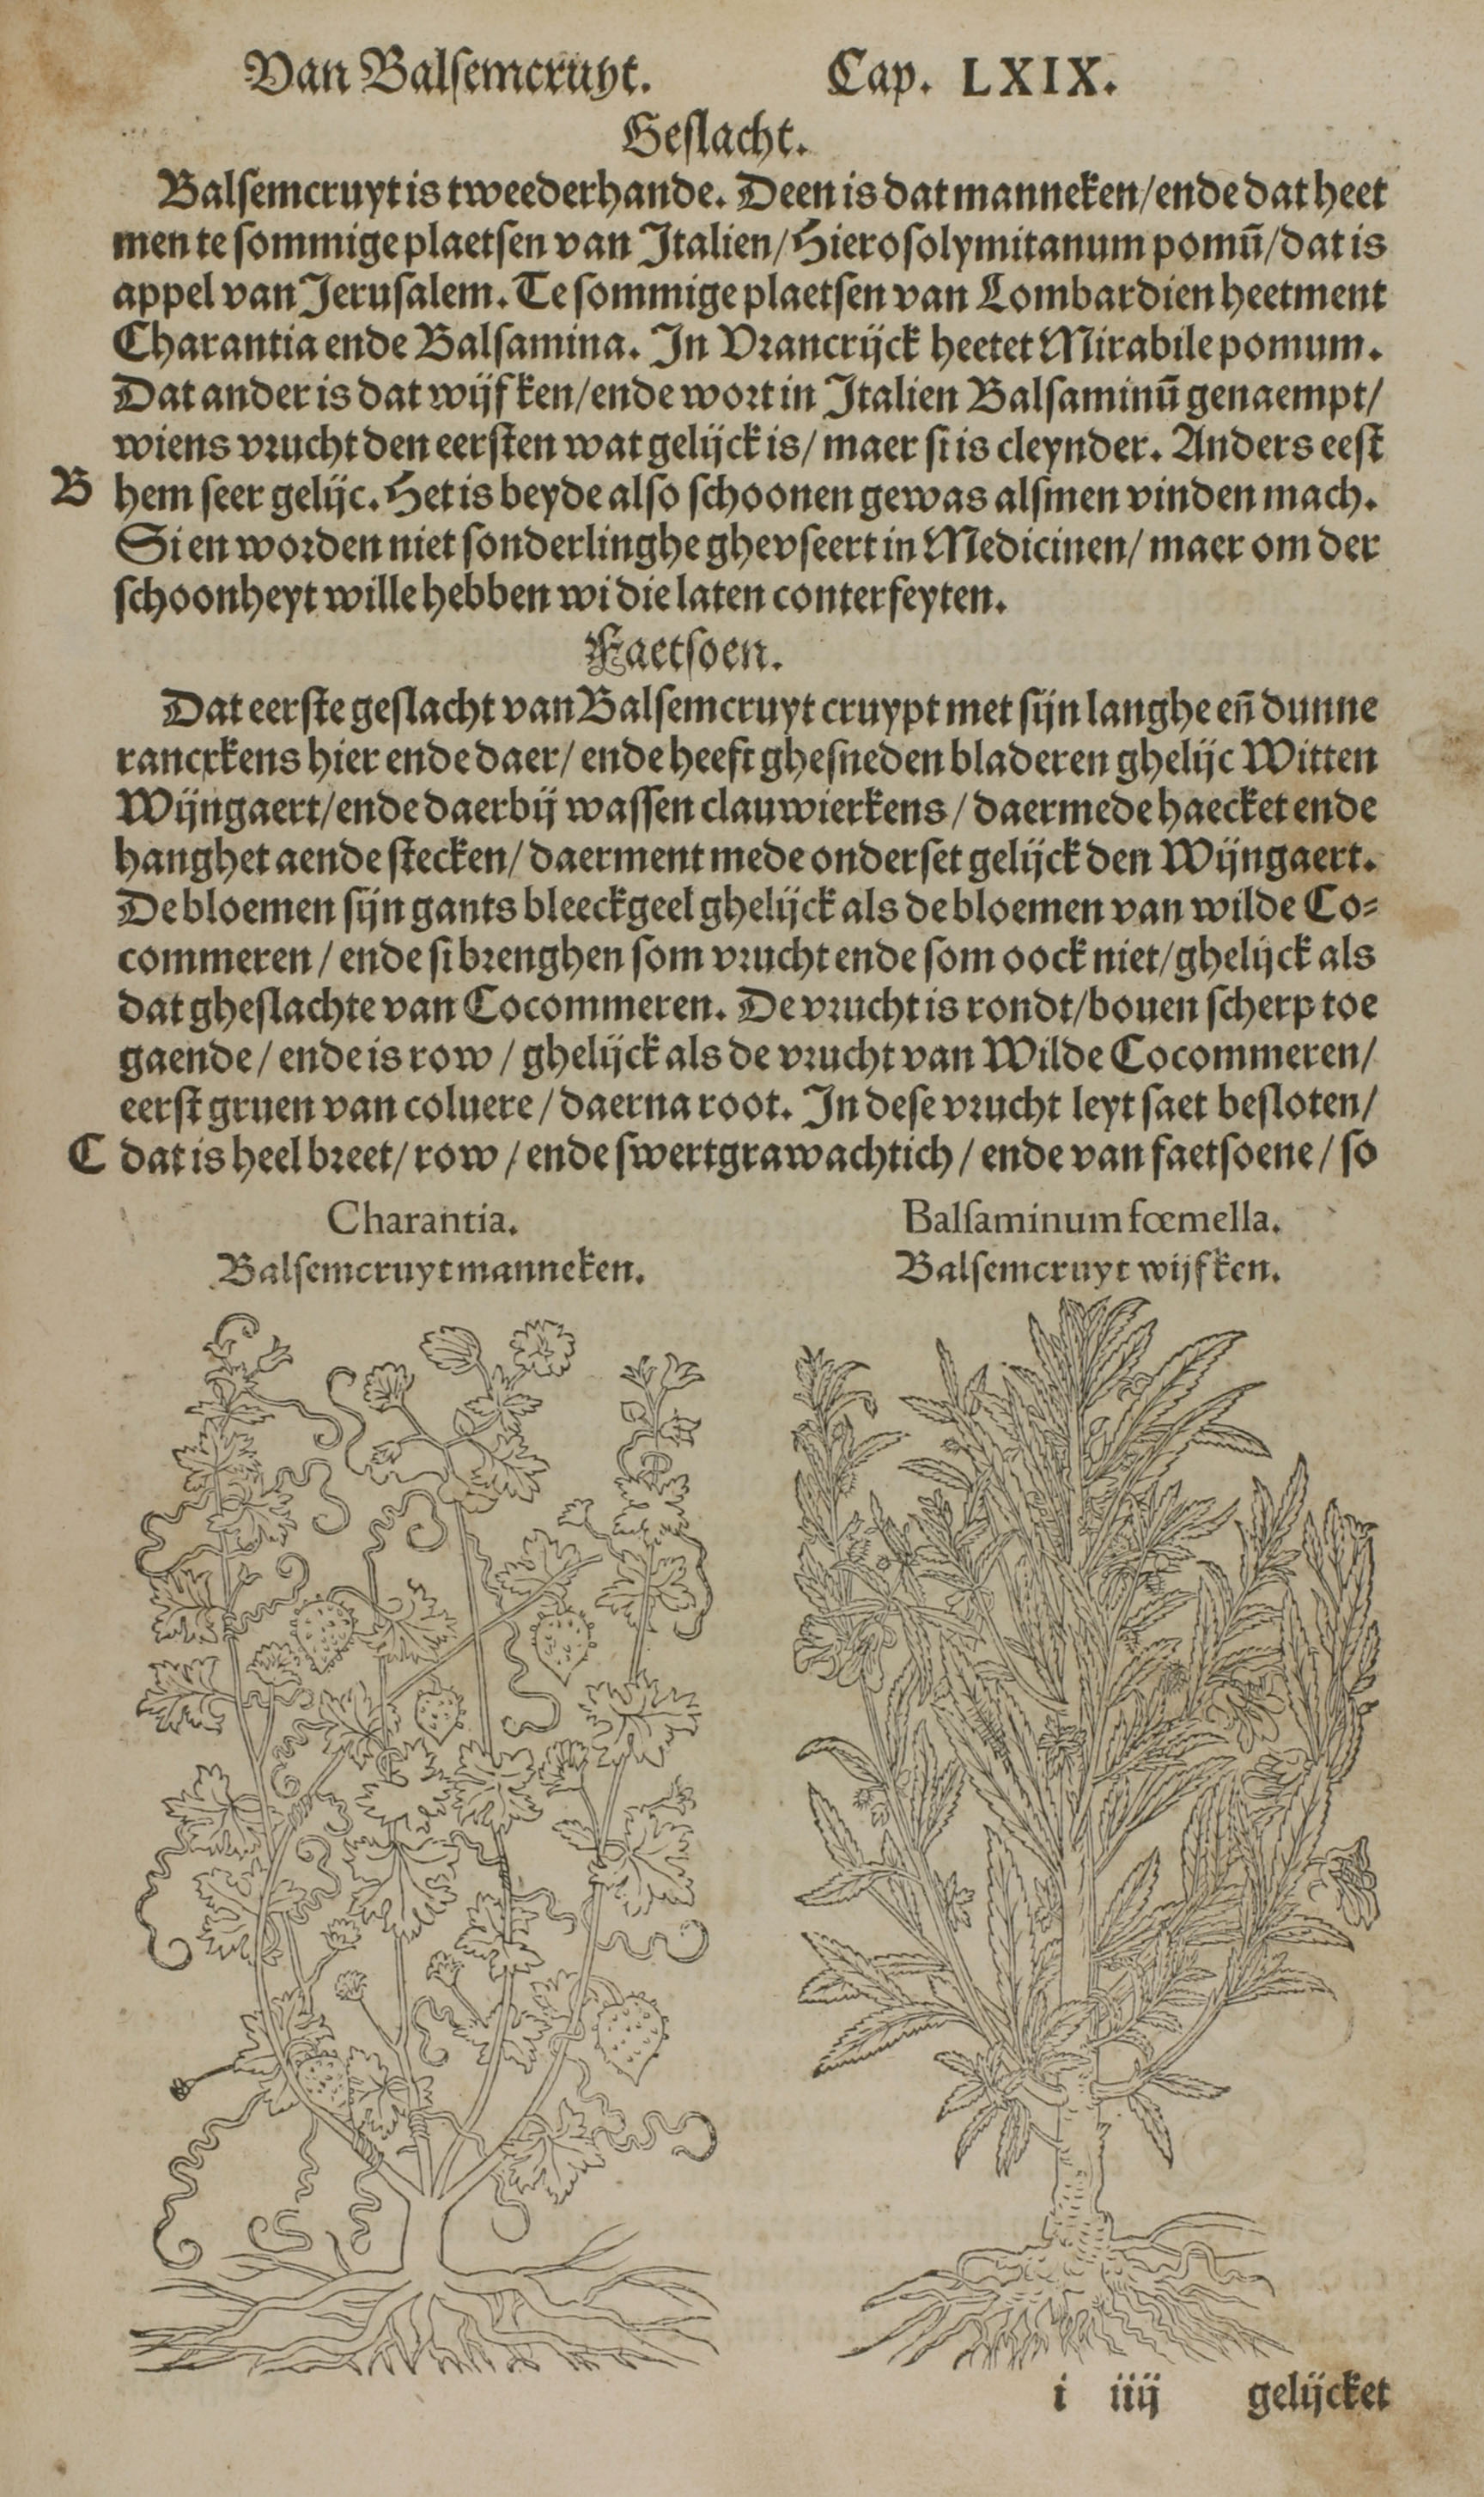 Van Balſemcruyt. Cap. LXIX.
Geſlacht.
Balſemcruyt is tweederhande. Deen is dat manneken/ende dat heet
men te ſommige plaetſen van Italien/Hieroſolymitanum pomū/dat is
appel van Jeruſalem. Te ſommige plaetſen van Lombardien heetment
Charantia ende Balſamina. In Vrancrijck heetet Mirabile pomum.
Dat ander is dat wijfken/ende wort in Italien Balſaminū genaempt/
wiens vrucht den eerſten wat gelijck is/ maer ſi is cleynder. Anders eeſt
B hem ſeer gelijc. Het is beyde alſo ſchoonen gewas alſmen vinden mach.
Si en worden niet ſonderlinghe ghevſeert in Medicinen/ maer om der
ſchoonheyt wille hebben wi die laten conterfeyten.
Faetſoen.
Dat eerſte geſlacht van Balſemcruyt cruypt met ſijn langhe eñ dunne
rancxkens hier ende daer/ ende heeft gheſneden bladeren ghelijc Witten
Wijngaert/ende daerbij waſſen clauwierkens/ daermede haecket ende
hanghet aende ſtecken/ daerment mede onderſet gelijck den Wijngaert.
De bloemen ſijn gants bleeckgeel ghelijck als de bloemen van wilde Co⸗
commeren/ ende ſi brenghen ſom vrucht ende ſom oock niet/ghelijck als
dat gheſlachte van Cocommeren. De vrucht is rondt/bouen ſcherp toe
gaende/ ende is row/ ghelijck als de vrucht van Wilde Cocommeren/
eerſt gruen van coluere/ daerna root. In deſe vrucht leyt ſaet beſloten/
C dat is heel breet/ row/ ende ſwertgrawachtich/ ende van faetſoene/ ſo
Charantia. Balſaminum fœmella.
Balſemcruyt manneken. Balſemcruyt wijfken.
i iiij gelijcket